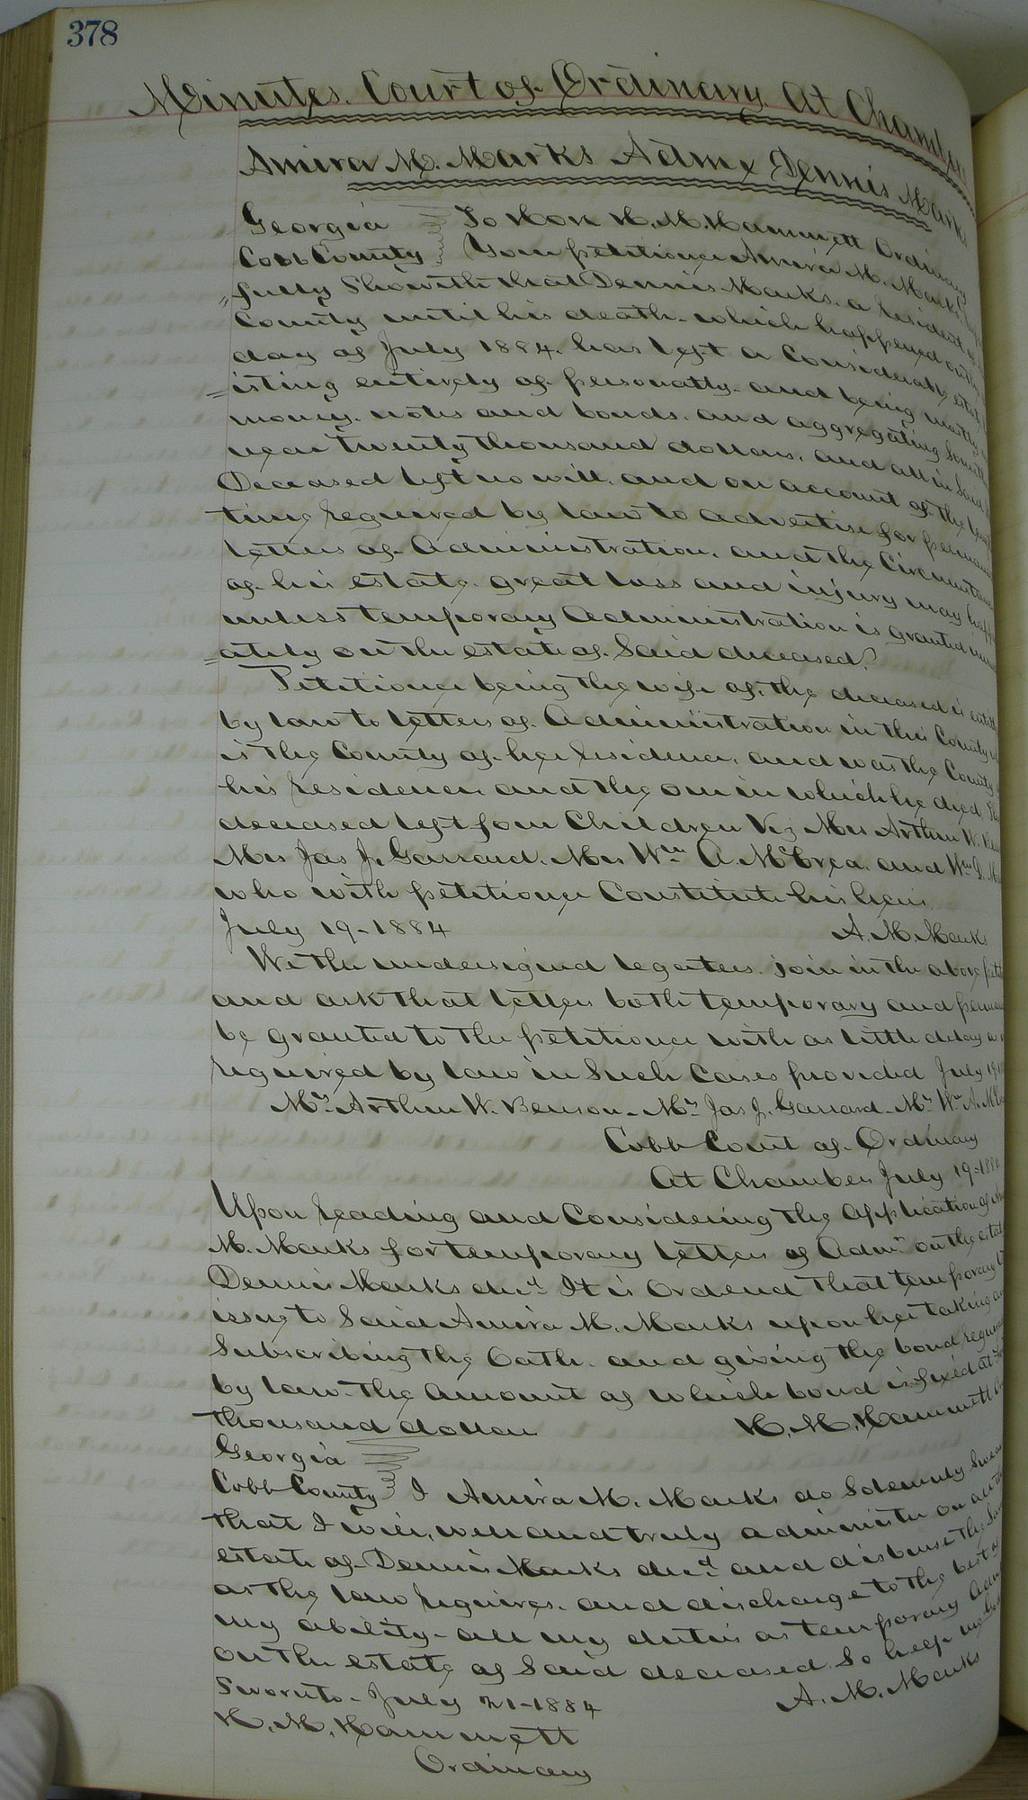 378
Minutes Court of Ordinary At Chambers
Amira M. Marks Admx Dennis Marks
Georgia To Hon H. M. Hammett Ordinary
Cobb County Your petitioner Amira M. Marks
fully Showeth that Dennis Marks, a resident of
County until his death which happened on the
day of July 1884. has left a Considerable estate
isting entirely of personalty and being mostly
money, notes and bonds, and aggregating
near twenty thousand dollars, and all in Said
Deceased left no will, and on account of the
time required by law to advertise for
letters of Administration, and the Circumstances
of his estate great loss and injury may
unless temporary Administration is granted
ately on the estate of Said deceased.
Petitioner being the wife of the deceased is
by law to letters of Administration in this County
is the County of her residence, and was the County
his residence and the one in which he died. The
deceased left four Children Viz Mrs Arthur W.
Mrs Jas J. Garrard. Mrs Wm A. McCrea. and Wm D.
who with petitioner Constitute his heirs.
July 19-1884 A. M. Marks
We the undersigned legatees. join in the above
and ask that letters both temporary and
be granted to the petitioner with as little delay as
required by law in Such Cases provided July 19
Mrs Arthur W. Benson - Mrs Jas J. Garrard - Mrs Wm A.
Cobb Court of Ordinary
At Chambers July 19-188
Upon reading and Considering the application of
M. Marks for temporary letters of Admn on the estate
Dennis Marks decd It is Ordered that temporary
issue to Said Amira M. Marks upon her taking
Subscribing the Oath, and giving the bond
by law. the amount of which bond is fixed at
thousand dollars H. M. Hammett
Georgia
Cobb County I Amira M. Marks do Solemnly
that I will, well and truly administer on all the
estate of Dennis Marks decd and disburse the
as the law requires. and discharge to the best of
my ability - all my duties as temporary
on the estate of Said deceased. So help me
Sworn to - July 21-1884 A. M. Marks
H. M. Hammett
Ordinary